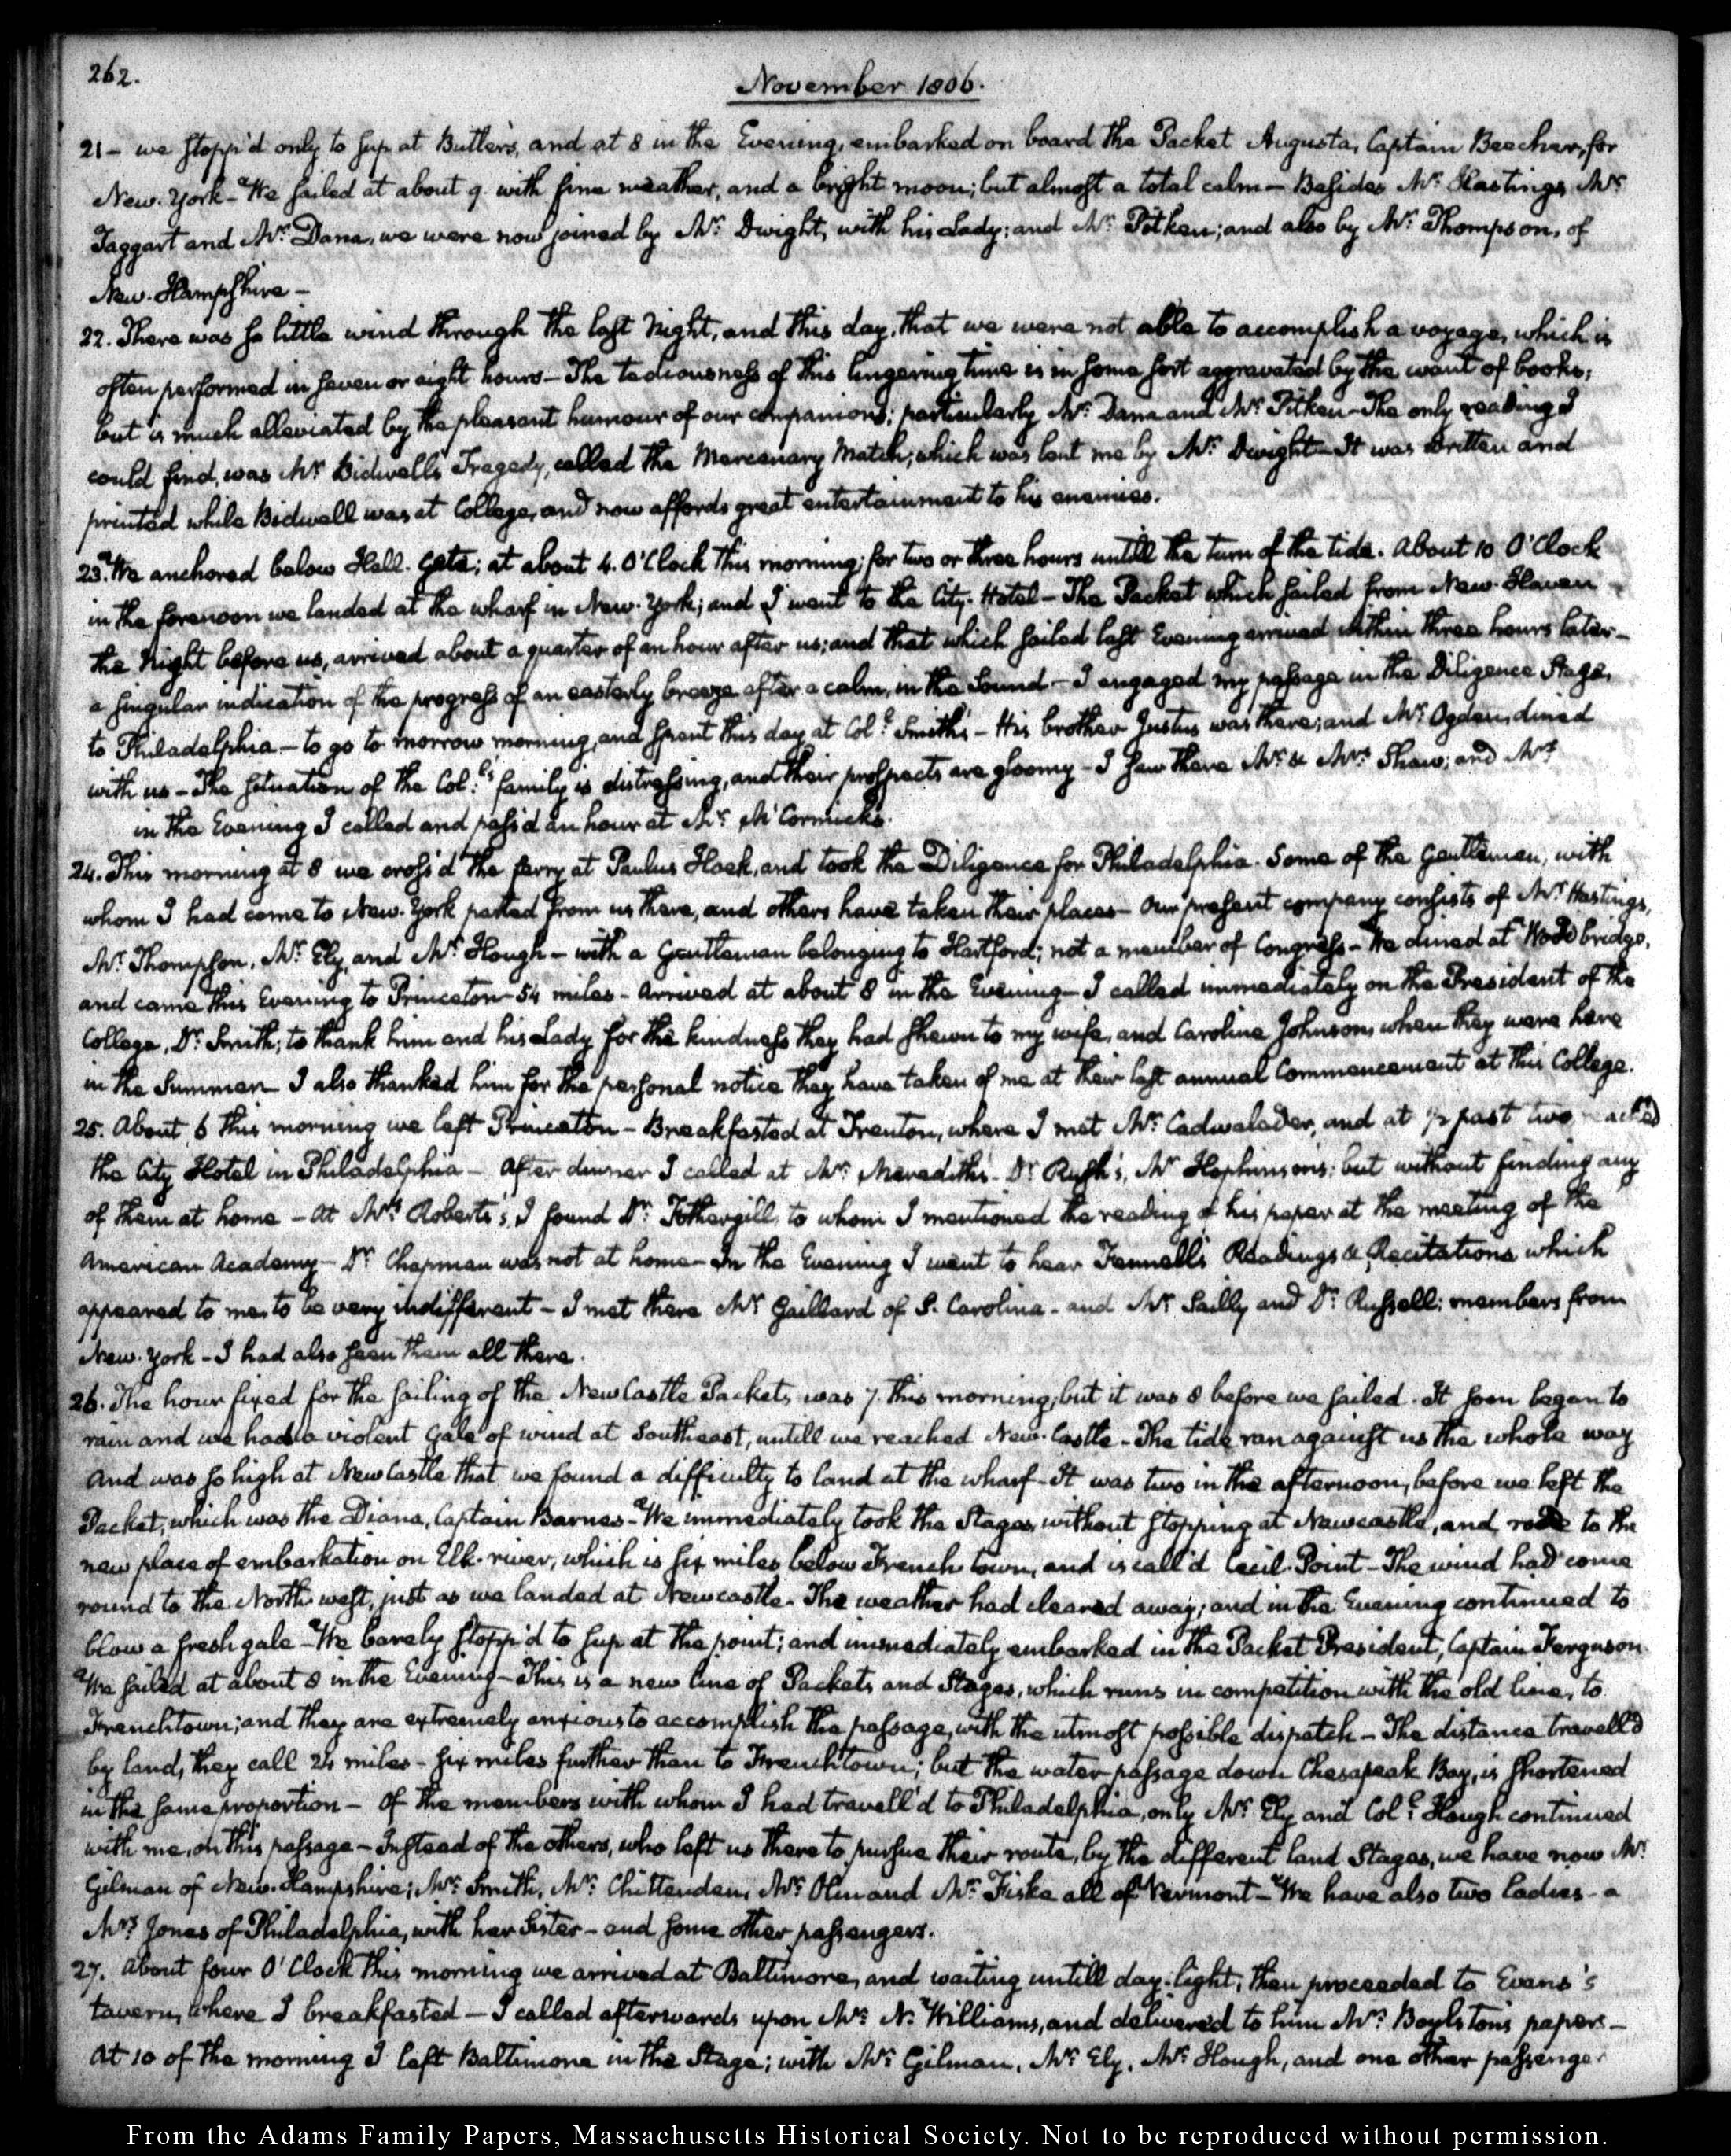 262.
November 1806.
21 - we stopp'd only to sup at Butler's, and at 8 in the Evening, embarked on board the Packet Augusta, Captain Beecher, for
New-York - We sailed at about 9. with fine weather, and a bright moon; but almost a total calm - Besides Mr. Hastings, Mr.
Taggart and Mr. Dana, we were now joined by Mr. Dwight, with his Lady; and Mr. Pitken; and also by Mr. Thompson, of
New-Hampshire -
22. There was so little wind through the last Night, and this day, that we were not able to accomplish a voyage, which is
often performed in seven or eight hours - The tediousness of this lingering time is in some sort aggravated by the want of books;
but is much alleviated by the pleasant humour of our companions; particularly Mr. Dana and Mr. Pitken - The only reading I
could find, was Mr. Bidwell's Tragedy, called the Mercenary Match; which was lent me by Mr. Dwight - It was written and
printed while Bidwell was at College, and now affords great entertainment to his enemies.
23. We anchored below Hell-Gate; at about 4. O'Clock this morning; for two or three hours untill the turn of the tide. About 10 O'Clock
in the forenoon we landed at the wharf in New-York; and I went to the City-Hotel - The Packet which sailed from New-Haven
the Night before us, arrived about a quarter of an hour after us; and that which sailed last Evening arrived within three hours later -
a singular indication of the progress of an easterly breeze after a calm, in the Sound - I engaged my passage in the Diligence Stage,
to Philadelphia - to go to morrow morning, and spent this day at Coll. Smith's - His brother Justus was there; and Mr. Ogden, dined
with us - The situation of the Coll.'s family is distressing, and their prospects are gloomy - I saw there Mr. & Mrs. Shaw; and Mrs.
in the Evening I called and pass'd an hour at Mr. McCormick's.
24. This morning at 8 we cross'd the ferry at Paulus Hook, and took the Diligence for Philadelphia. Some of the Gentlemen, with
whom I had come to New-York parted from us there, and others have taken their places - Our present company consists of Mr. Hastings,
Mr. Thompson, Mr. Ely, and Mr. Hough - with a Gentleman belonging to Hartford; not a member of Congress - We dined at Woodbridge,
and came this Evening to Princeton - 54 miles - Arrived at about 8 in the Evening - I called immediately on the President of the
College, Dr. Smith; to thank him and his Lady for the kindness they had shewn to my wife, and Caroline Johnson, when they were here
in the Summer - I also thanked him for the personal notice they have taken of me at their last annual Commencement at this College.
25. About 6 this morning we left Princeton - Breakfasted at Trenton, where I met Mr. Cadwalader, and at 1/2 past two reached
the City Hotel in Philadelphia - After dinner I called at Mr. Meredith's - Dr. Rush's, Mr. Hopkinson's; but without finding any
of them at home - At Mrs. Roberts's, I found Dr. Fothergill, to whom I mentioned the reading of his paper at the meeting of the
American Academy - Dr. Chapman was not at home - In the Evening I went to hear Fennell's Readings & Recitations which
appeared to me to be very indifferent - I met there Mr. Gaillard of S. Carolina - and Mr. Sailly and Dr. Russell; members from
New-York - I had also seen them all there.
26. The hour fixed for the sailing of the New Castle Packets, was 7. this morning, but it was 8 before we sailed. It soon began to
rain and we had a violent Gale of wind at Southeast, untill we reached New-Castle - The tide ran against us the whole way
and was so high at New Castle that we found a difficulty to land at the wharf - It was two in the afternoon, before we left the
Packet, which was the Diana, Captain Barnes - We immediately took the Stages, without stopping at Newcastle, and rode to the
new place of embarkation on Elk-river, which is six miles below French town, and is call'd Cecil-Point - The wind had come
round to the North west, just as we landed at Newcastle. The weather had cleared away; and in the Evening continued to
blow a fresh gale - We barely stopp'd to sup at the point; and immediately embarked in the Packet President, Captain Ferguson.
We sailed at about 8 in the Evening - This is a new line of Packets and Stages, which runs in competition with the old line, to
Frenchtown; and they are extremely anxious to accomplish the passage, with the utmost possible dispatch - The distance travell'd
by land, they call 24 miles - six miles further than to Frenchtown; but the water passage down Chesapeak Bay, is shortened
in the same proportion - Of the members with whom I had travell'd to Philadelphia, only Mr. Ely and Coll. Hough continued
with me, on this passage - Instead of the others, who left us there to pursue their route, by the different land Stages, we have now Mr.
Gilman of New-Hampshire; Mr. Smith, Mr. Chittenden, Mr. Olin and Mr. Fisk all of Vermont - We have also two Ladies - a
Mrs. Jones of Philadelphia, with her Sister - and some other passengers.
27. About four O'Clock this morning we arrived at Baltimore, and waiting untill day-light, then proceeded to Evans's
tavern, where I breakfasted - I called afterwards upon Mr. N. Williams, and delivered to him Mr. Boylston's papers -
At 10 of the morning I left Baltimore in the Stage; with Mr. Gilman, Mr. Ely, Mr. Hough, and one other passenger
From the Adams Family Papers, Massachusetts Historical Society. Not to be reproduced without permission.